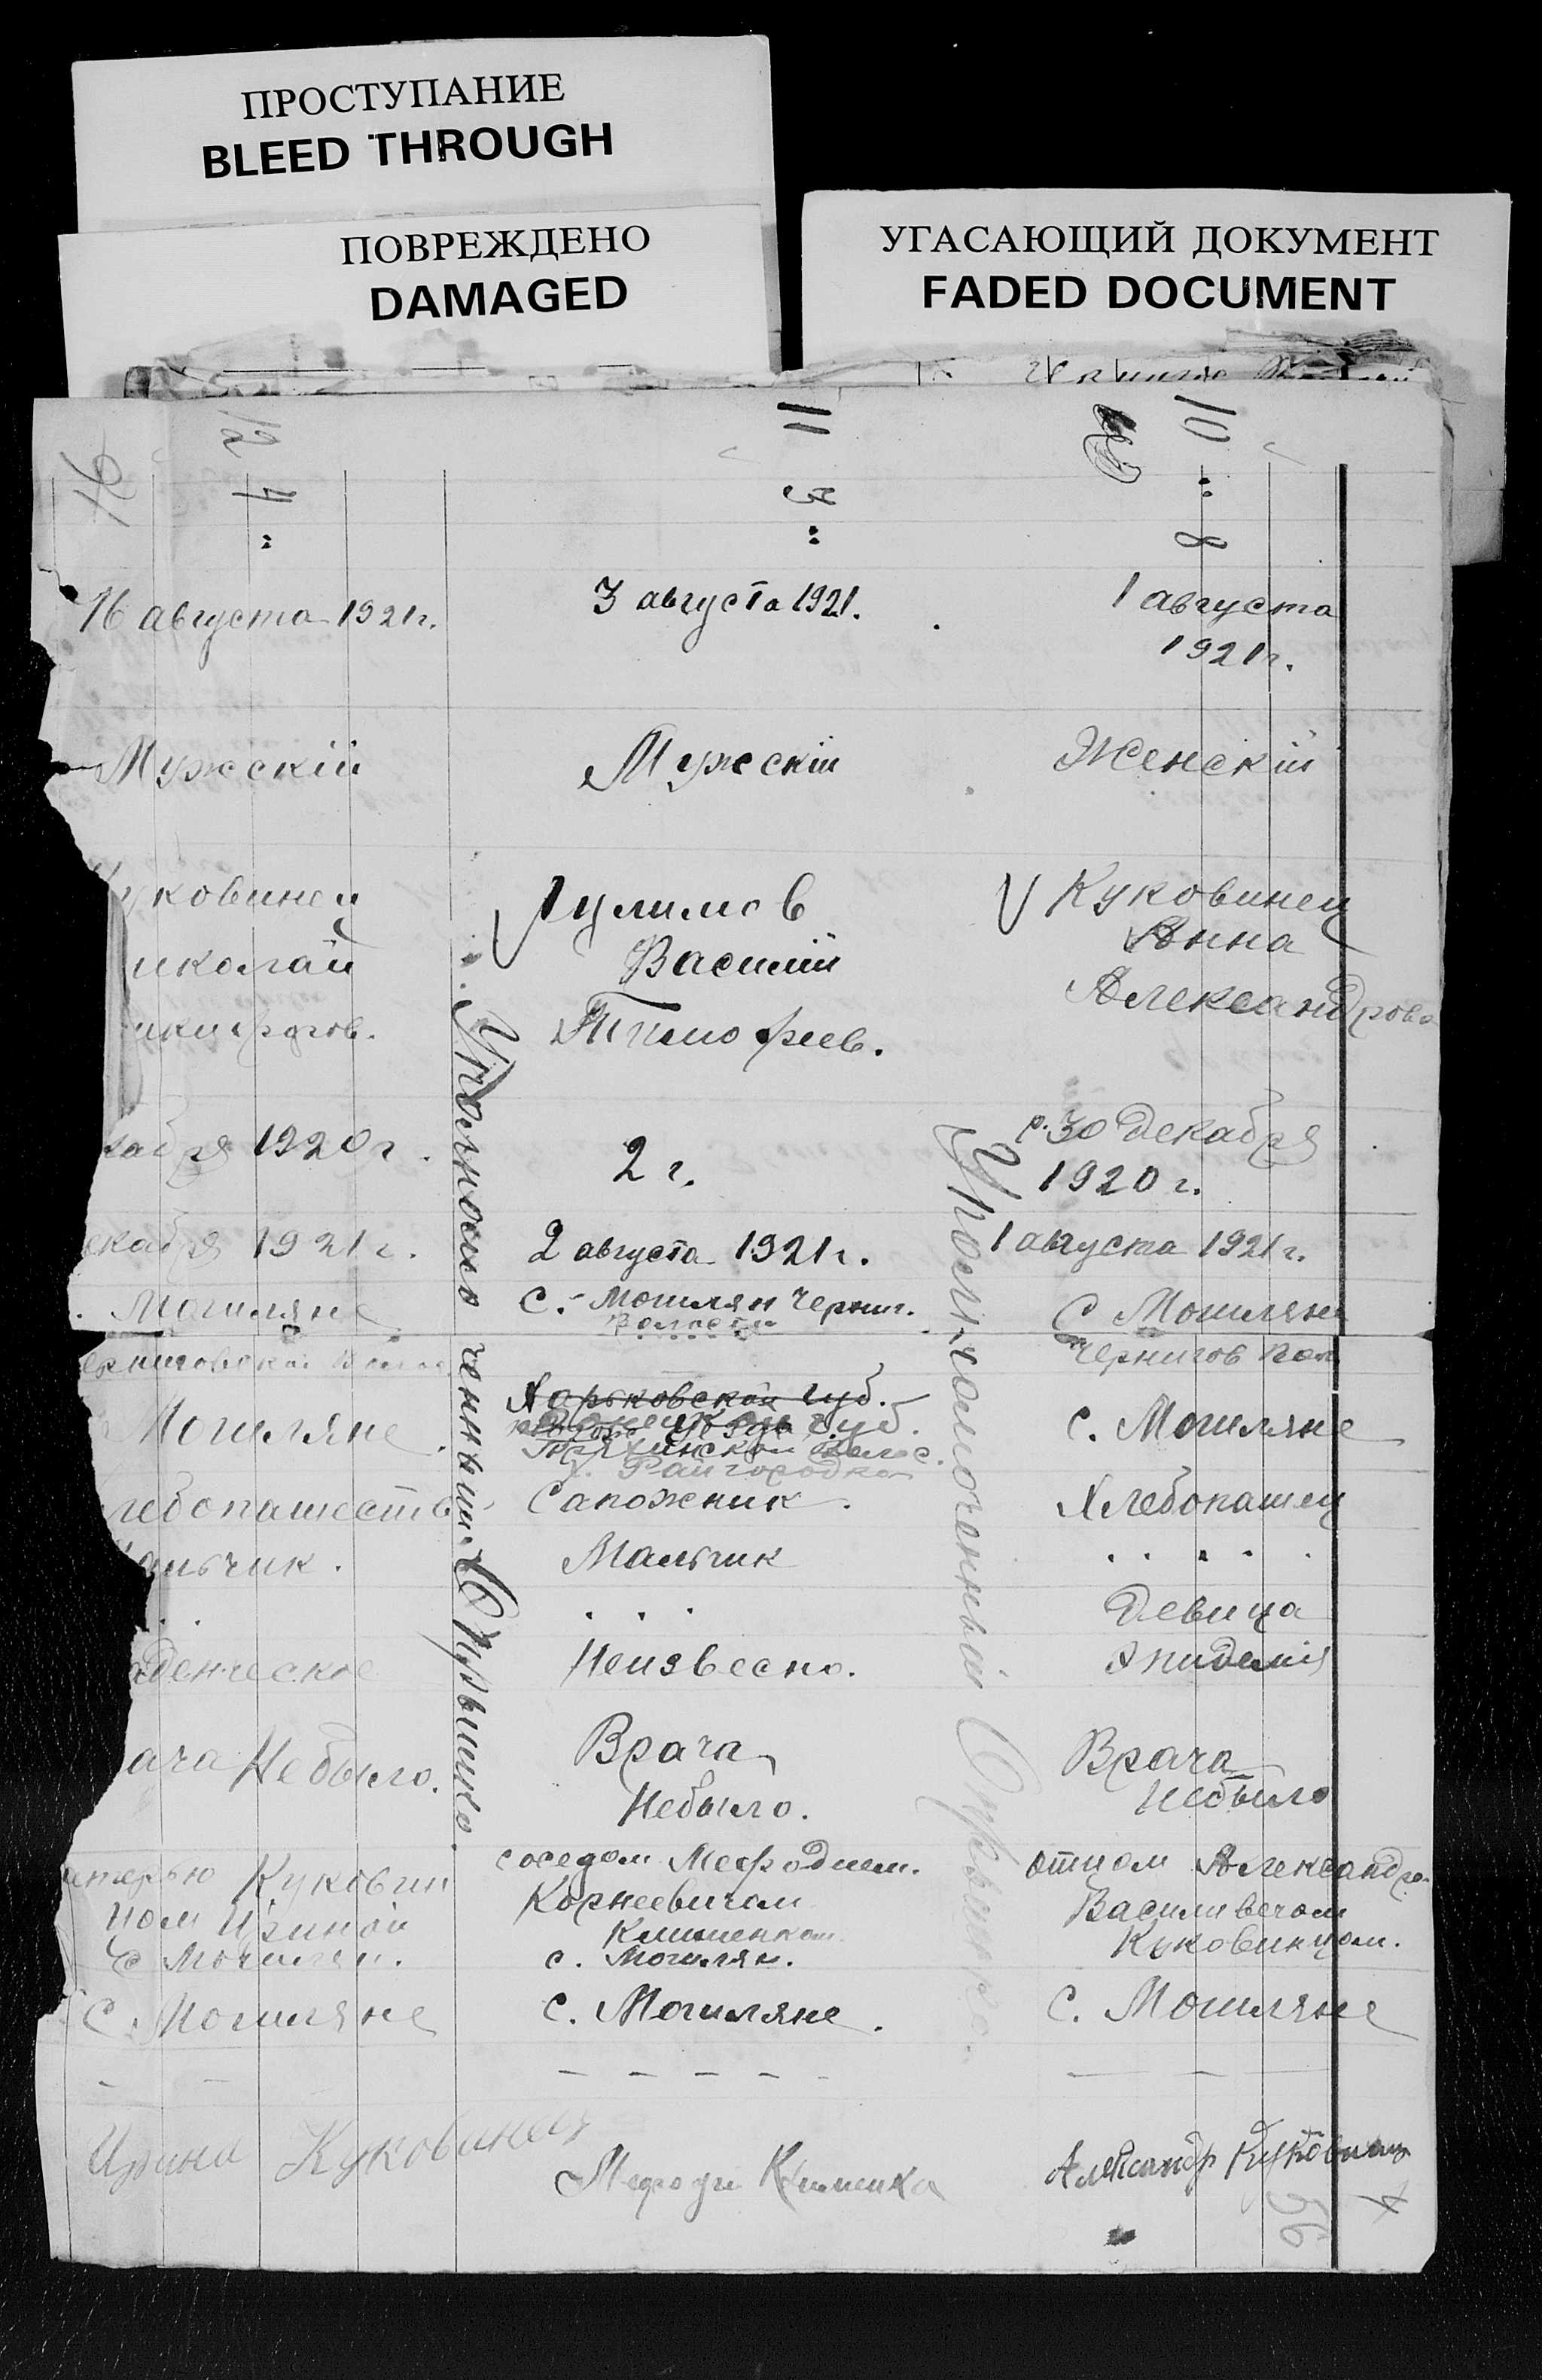 ПРОСТУПАНИЕ
BLEED THROUGH
ПОВРЕЖДЕНО
DAMAGED
УГАСАЮЩИЙ ДОКУМЕНТ
FADED DOCUMENT
12
4 "
16 августа 1921 г.
Мужскій
уковинец
иколай
кабря 1920 г.
екабря 1921 г.
Могиляне
ерниговской
Могиляне.
лебопашеств
альчик.
. .
аденческое
ача Небыло.
атерью Куковин
цом Ириной
С Могилян.
С. Могиляне
- -
Ирина Куковинец
Уполномоченный
11
3 "
3 августа 1921.
Мужскій
Василій
Тимофеев.
2 г.
2 августа 1921 г.
с. Могилян Черниг.
Волости
Харьковской губ.
Райгородка
Сапожник.
Мальчик
. . .
Неизвесно.
Врача
Небыло.
соседом Мефодием.
Корнеевичом
Клименком
с. Могилян.
с. Могиляне.
- - - - -
Мефоди Клименка
Уполномоченный
10
" 8
1 августа
1921 г.
Женскій
Куковинец
Анна
Александрова
р. 30 декабря
1920 г.
1 августа 1921 г.
С Могиляне
Чернигов вол
с. Могиляне
Хлебопашец
. . . . .
Девица
Эпидемія
Врача
Небыло
отцом Александро
Василивечом
Куковинцом.
с. Могиляне
- - -
Александр Куковинец
56